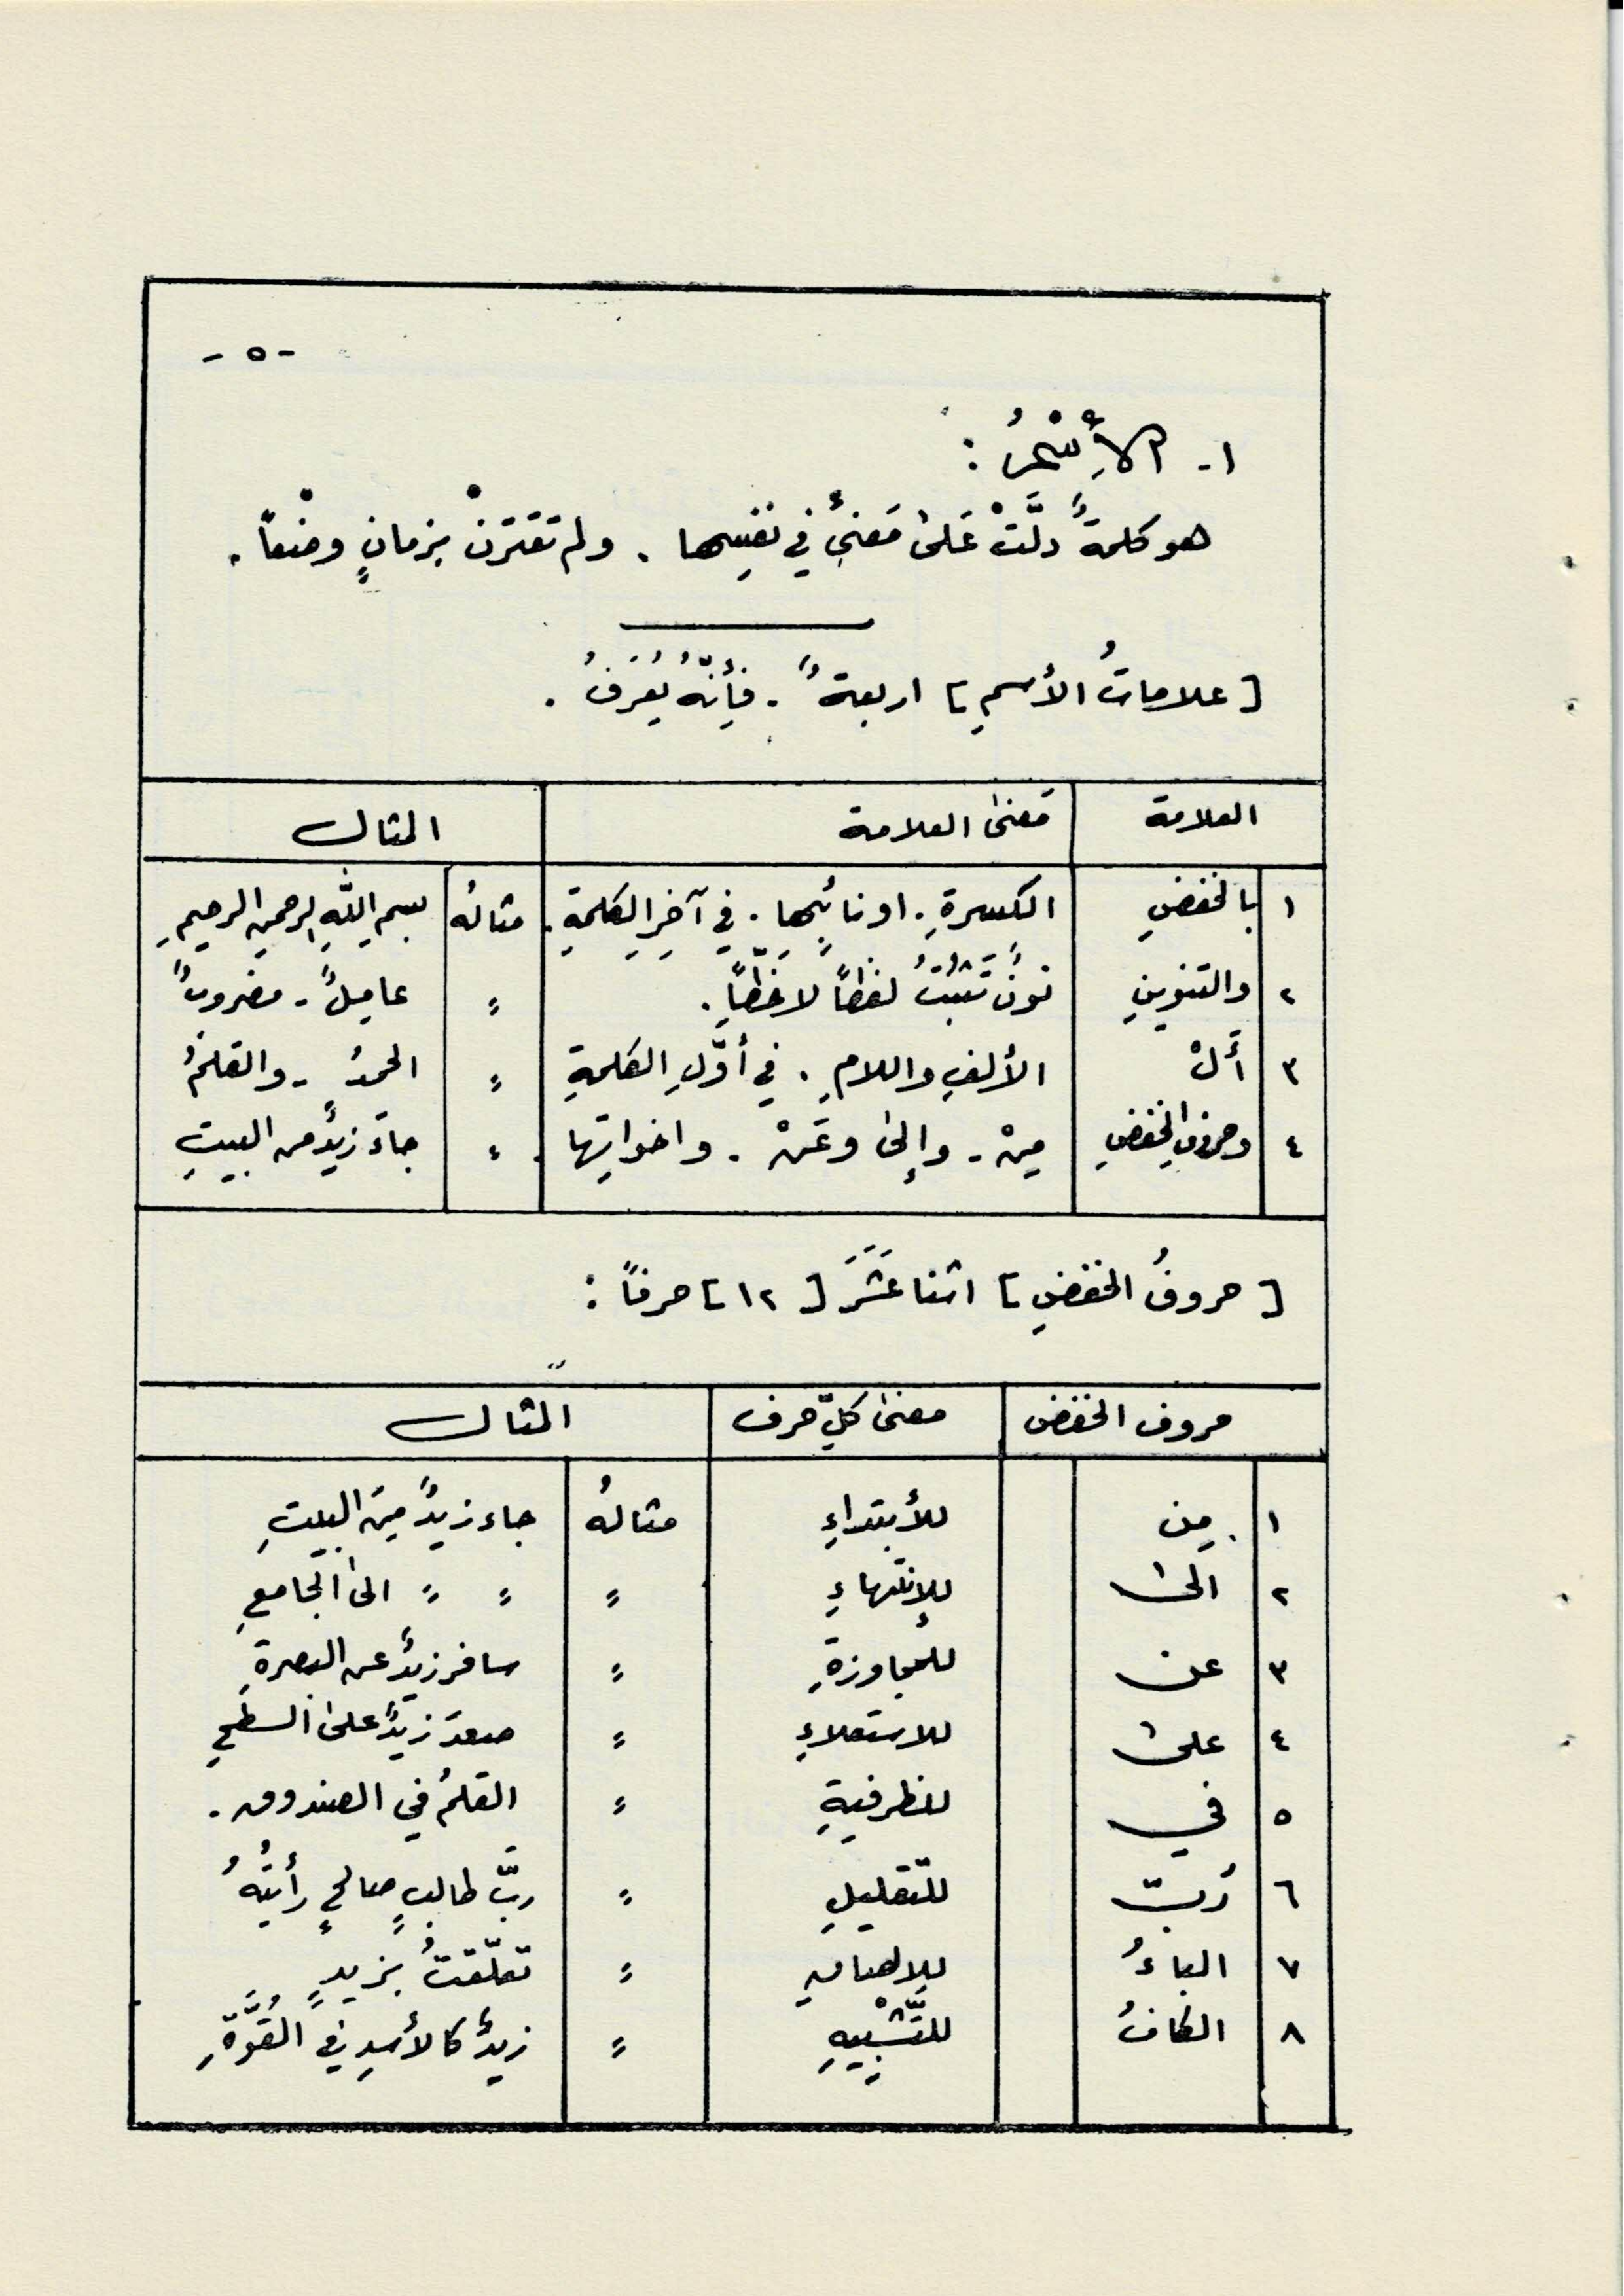 - ٥ -
١- الأِسْمُ :
هو كلمةٌ دلَّتْ عَلىٰ مَعنىً في نفسِها . ولم تقترنْ بزمانٍ وضعاً .
[ علاماتُ الأسمِ ] اربعةٌ . فإنّهُ يُعرَفُ .
العلامة | معنىٰ العلامة | المثال
١ | بالخفضِ | الكسرةِ . او نائبِها . في آخِرِ الكلمةِ . | مثالهُ | بسمِ اللهِ الرحمنِ الرحيمِ
٢ | والتنوينِ | نونٌ تَثبُتُ لفظاً لا خَطّاً . | " | عاملٌ - مضروبٌ
٣ | أَلْ | الألفِ واللامِ . في أوّلِ الكلمةِ | " | الحمدُ - والقلمُ
٤ | وحروفِ الخفضِ | مِنْ - وإلىٰ وعَنْ - واخواتِها . | " | جاءَ زيدٌ من البيتِ
[ حروفُ الخفضِ ] اثنا عَشَرَ [ ١٢ ] حرفاً :
حروف الخفض | معنىٰ كلِّ حرف | المثال
١ | مِن | للأبتداءِ | مثالهُ | جاء زيدٌ مِنَ البيتِ
٢ | الىٰ | للإنتهاءِ | " | " " الىٰ الجامعِ
٣ | عن | للمجاوزةِ | " | سافر زيدٌ عن البصرةِ
٤ | علىٰ | للاستعلاءِ | " | صعدَ زيدٌ علىٰ السطحِ
٥ | في | للظرفيةِ | " | القلمُ في الصندوق .
٦ | رُبّ | للتّقليلِ | " | ربَّ طالبٍ صالحٍ رأيتُهُ
٧ | الباءُ | للالصاقِ | " | تعلّقتُ بزيدٍ
٨ | الكافُ | للتَّشْبيهِ | " | زيدٌ كالأسدِ في القُوَّةِ